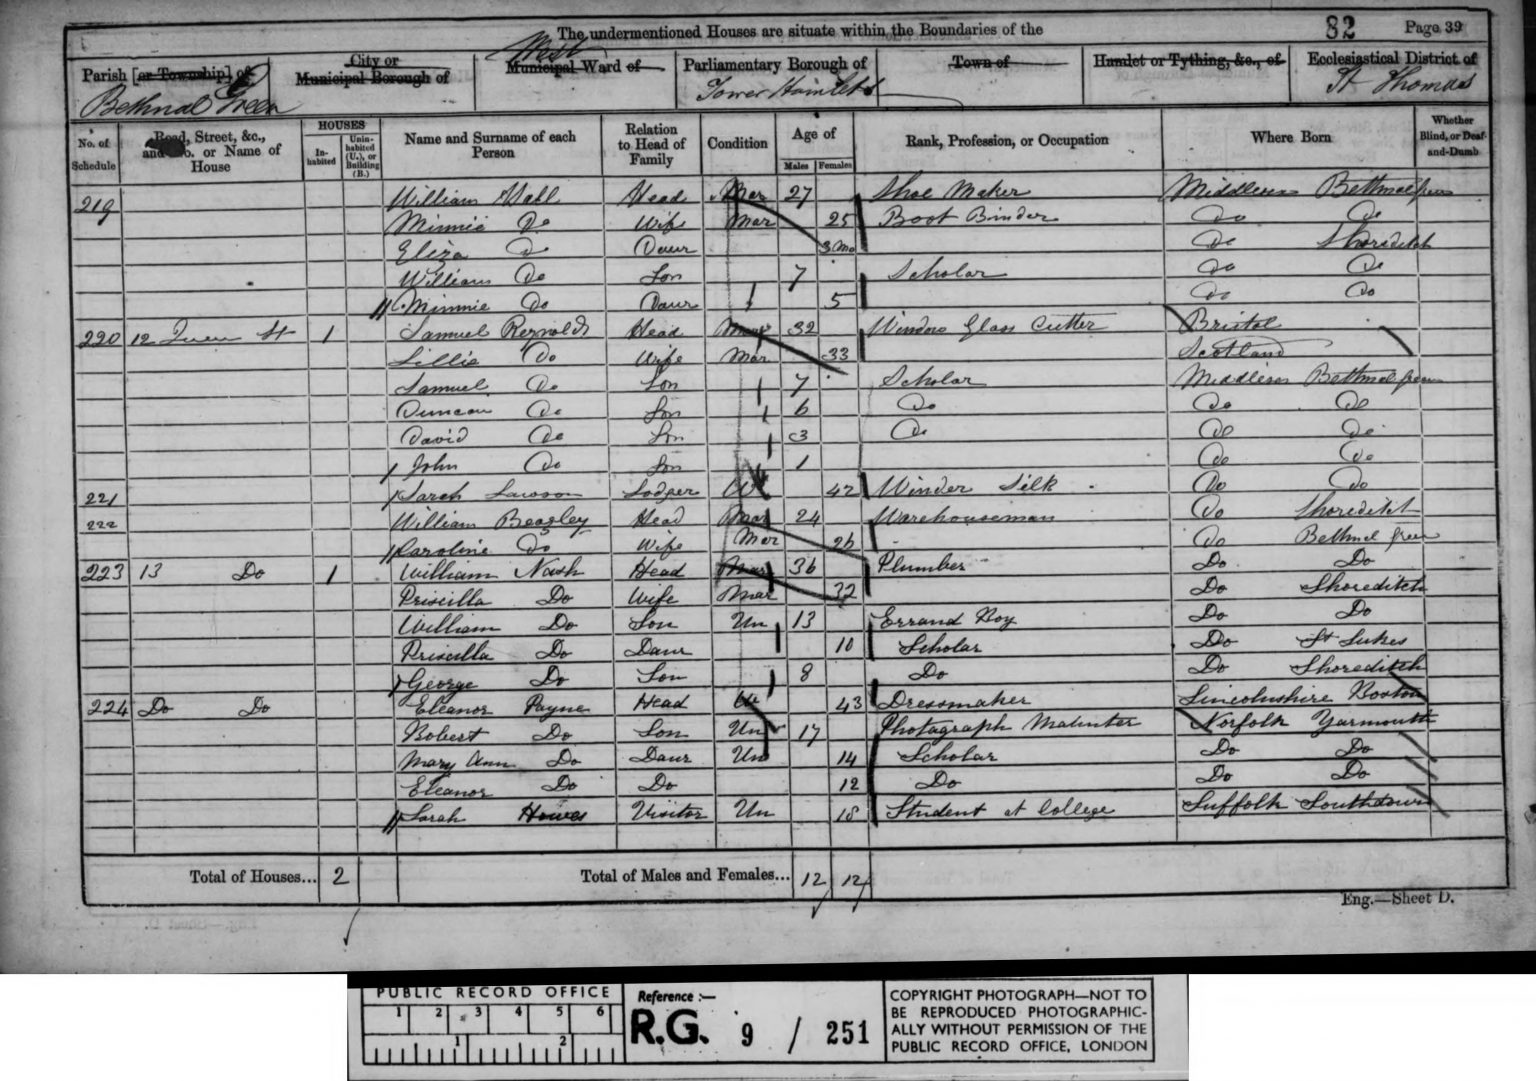 The undermentioned Houses are situate within the Boundaries of the 82 Page 39
Parish [or Township] of Bethnal Green
City or Municipal Borough of
West Municipal Ward of
Parliamentary Borough of Tower Hamlets
Town of
Hamlet or Tything, &c., of
Ecclesiastical District of St Thomas
No. of Schedule
Road, Street, &c., and No. or Name of House
HOUSES
Inhabited
Uninhabited (U.), or Building (B.)
Name and Surname of each Person
Relation to Head of Family
Condition
Age of
Males Females
Rank, Profession, or Occupation
Where Born
Whether Blind, or Deaf-and-Dumb
219 William Hall Head Mar 27 Shoe Maker Middlesex Bethnal green
Minnie Do Wife Mar 25 Boot Binder Do Do
Eliza Do Daur 3 Mo Do Shoreditch
William Do Son 7 Scholar Do Do
Minnie Do Daur 5 Do Do
220 12 St 1 Samuel Reynolds Head Mar 32 Window Glass Cutter Bristol
Lillie Do Wife Mar 33 Scotland
Samuel Do Son 7 Scholar Middlesex Bethnal green
Duncan Do Son 6 Do Do Do
David Do Son 3 Do Do Do
John Do Son 1 Do Do
221 Sarah Lawson Lodger W 42 Winder Silk Do Do
222 William Beasley Head Mar 24 Warehouseman Do Shoreditch
Caroline Do Wife Mar 26 Do Bethnal green
223 13 Do 1 William Nash Head Mar 36 Plumber Do Do
Priscilla Do Wife Mar 32 Do Shoreditch
William Do Son Un 13 Errand Boy Do Do
Priscilla Do Daur 10 Scholar Do St Lukes
George Do Son 8 Do Do Shoreditch
224 Do Do Eleanor Payne Head W 43 Dressmaker Lincolnshire Boston
Robert Do Son Un 17 Photograph Norfolk Yarmouth
Mary Ann Do Daur Un 14 Scholar Do Do
Eleanor Do Do 12 Do Do Do
Sarah Howes Visitor Un 18 Student at College Suffolk Southtown
Total of Houses... 2 Total of Males and Females... 12 12
Eng.—Sheet D.
PUBLIC RECORD OFFICE
1 2 3 4 5 6
1 2
Reference :—
R.G. 9 / 251
COPYRIGHT PHOTOGRAPH—NOT TO
BE REPRODUCED PHOTOGRAPHIC-
ALLY WITHOUT PERMISSION OF THE
PUBLIC RECORD OFFICE, LONDON